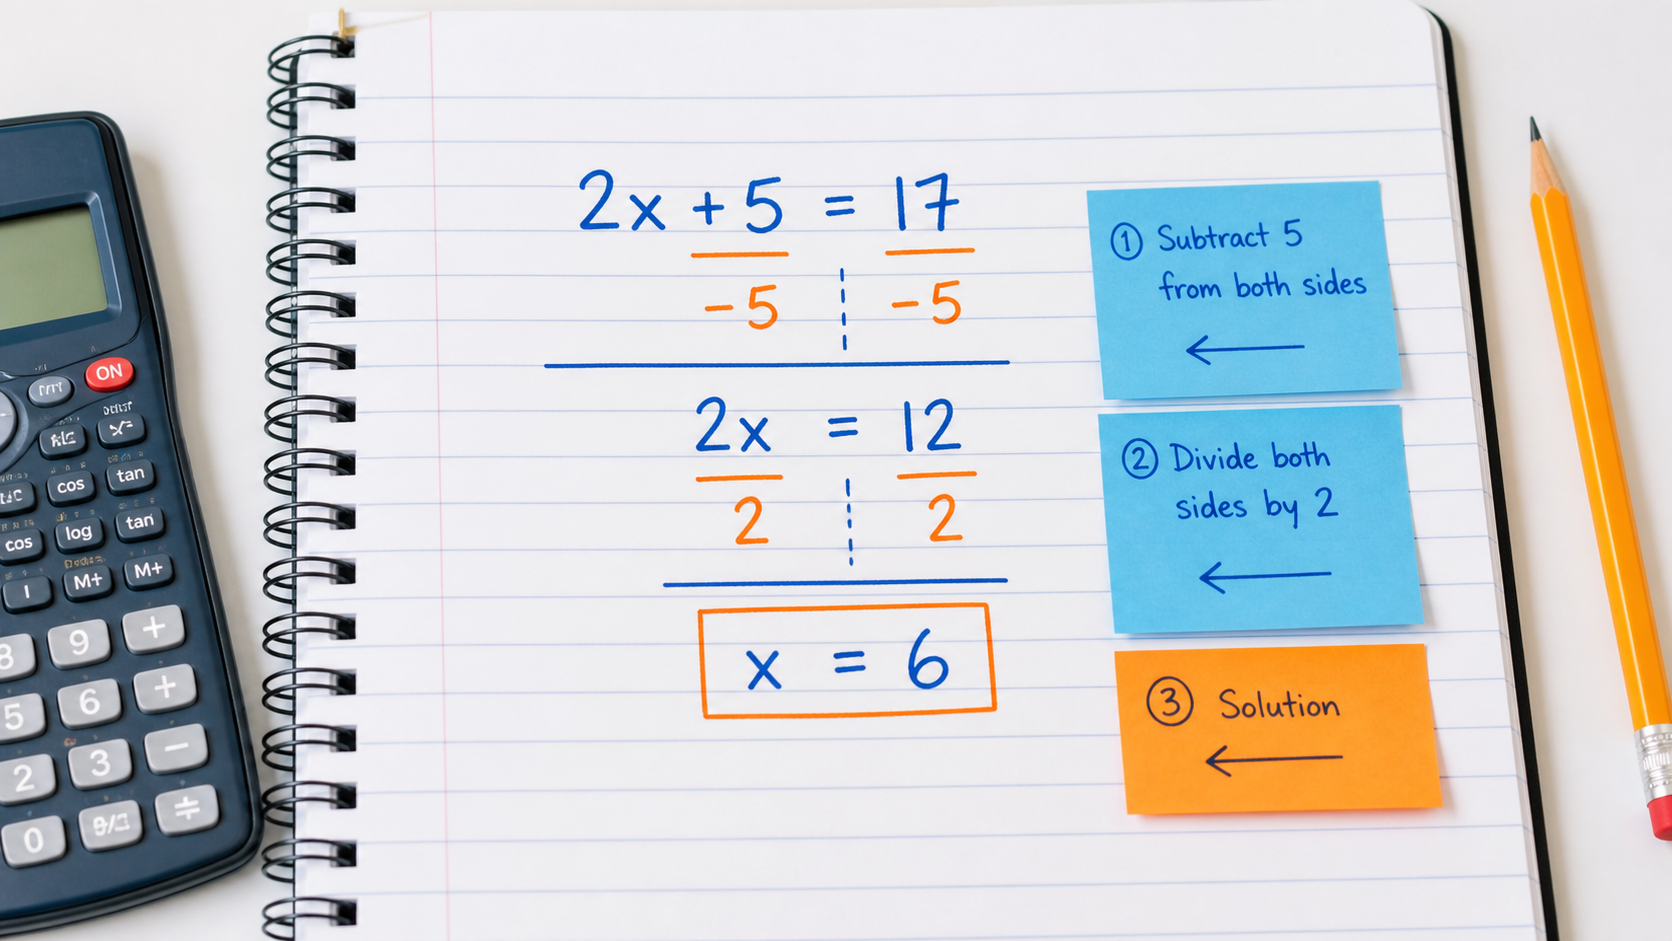 2x + 5 = 17
-5 -5
2x = 12
2 2
x = 6
① Subtract 5
from both sides
② Divide both
sides by 2
③ Solution
ON
tan
cos
tan
cos
log
M+
M+
8
9
+
5
6
+
2
3
−
0
÷